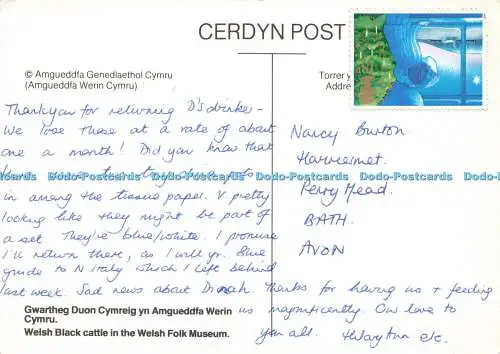 CERDYN POST
© Amgueddfa Genedlaethol Cymru
(Amgueddfa Werin Cymru)
Torrer y
Addre
Thankyou for returning D's drinker -
We lose these at a rate of about
one a month! Did you know that
in among the tissue paper. V pretty
looking like they might be part of
a set. They're blue/white. I promise
I'll return them, as I will yr. Blue
guide to N Italy which I left behind
last week. Sad news about Dinah. Thanks for having us + feeding
us magnificently. Our love to
you all. Hilary Ann etc.
Nancy Burton
Perry Mead.
BATH.
AVON
Dodo-Postcards Dodo-Postcards Dodo-Postcards Dodo-Postcards
Gwartheg Duon Cymreig yn Amgueddfa Werin
Cymru.
Welsh Black cattle in the Welsh Folk Museum.